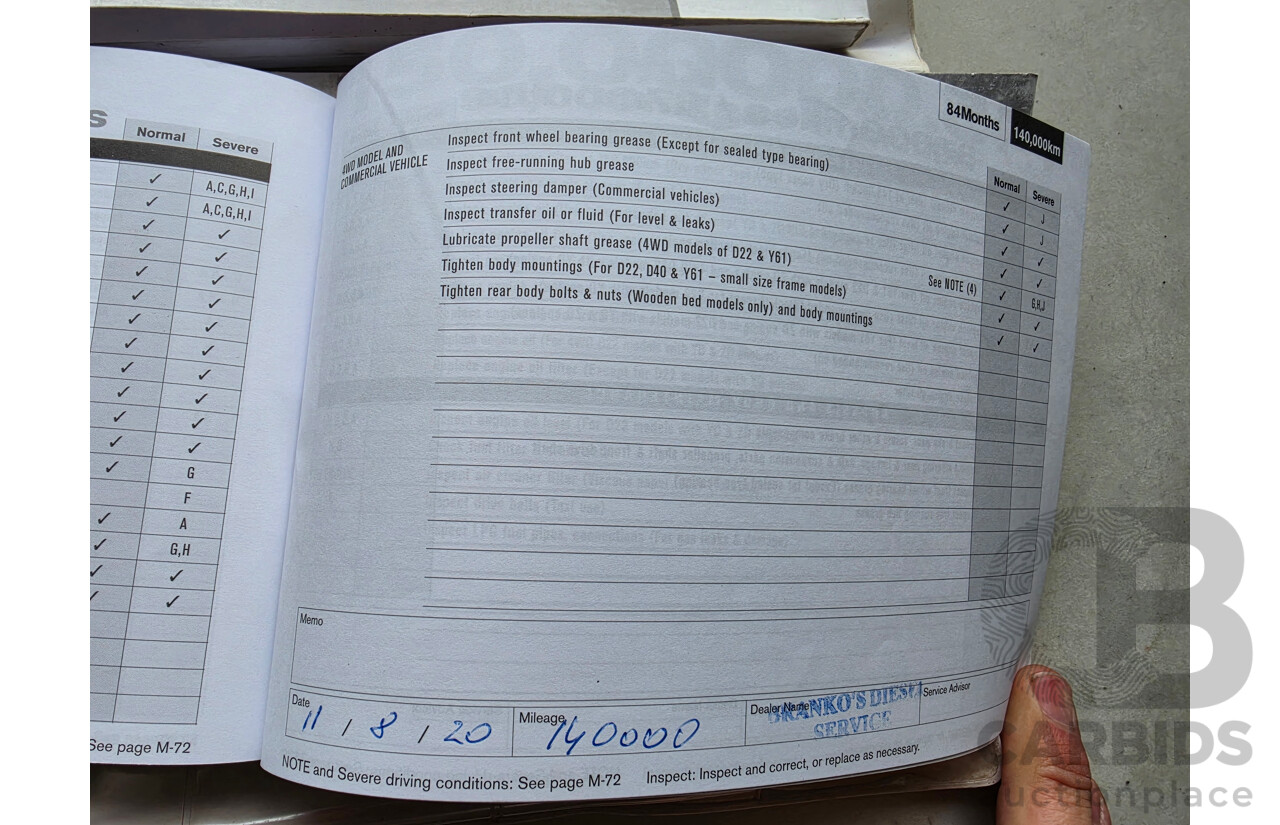 S
Normal Severe
✓ A,C,G,H,I
✓ A,C,G,H,I
✓ ✓
✓ ✓
✓ ✓
✓ ✓
✓ ✓
✓ ✓
✓ ✓
✓ ✓
✓ ✓
✓ ✓
✓ G
F
✓ A
✓ G,H
✓ ✓
✓ ✓
See page M-72
84Months 140,000km
Normal Severe
4WD MODEL AND
COMMERCIAL VEHICLE
Inspect front wheel bearing grease (Except for sealed type bearing) ✓ J
Inspect free-running hub grease ✓ J
Inspect steering damper (Commercial vehicles) ✓ ✓
Inspect transfer oil or fluid (For level & leaks) ✓ ✓
Lubricate propeller shaft grease (4WD models of D22 & Y61) See NOTE (4) ✓ G,H,J
Tighten body mountings (For D22, D40 & Y61 – small size frame models) ✓ ✓
Tighten rear body bolts & nuts (Wooden bed models only) and body mountings ✓ ✓
Memo
Date 11 / 8 / 20
Mileage 140000
Dealer Name BRANKO'S DIESEL
SERVICE
Service Advisor
NOTE and Severe driving conditions: See page M-72 Inspect: Inspect and correct, or replace as necessary.
CARBIDS